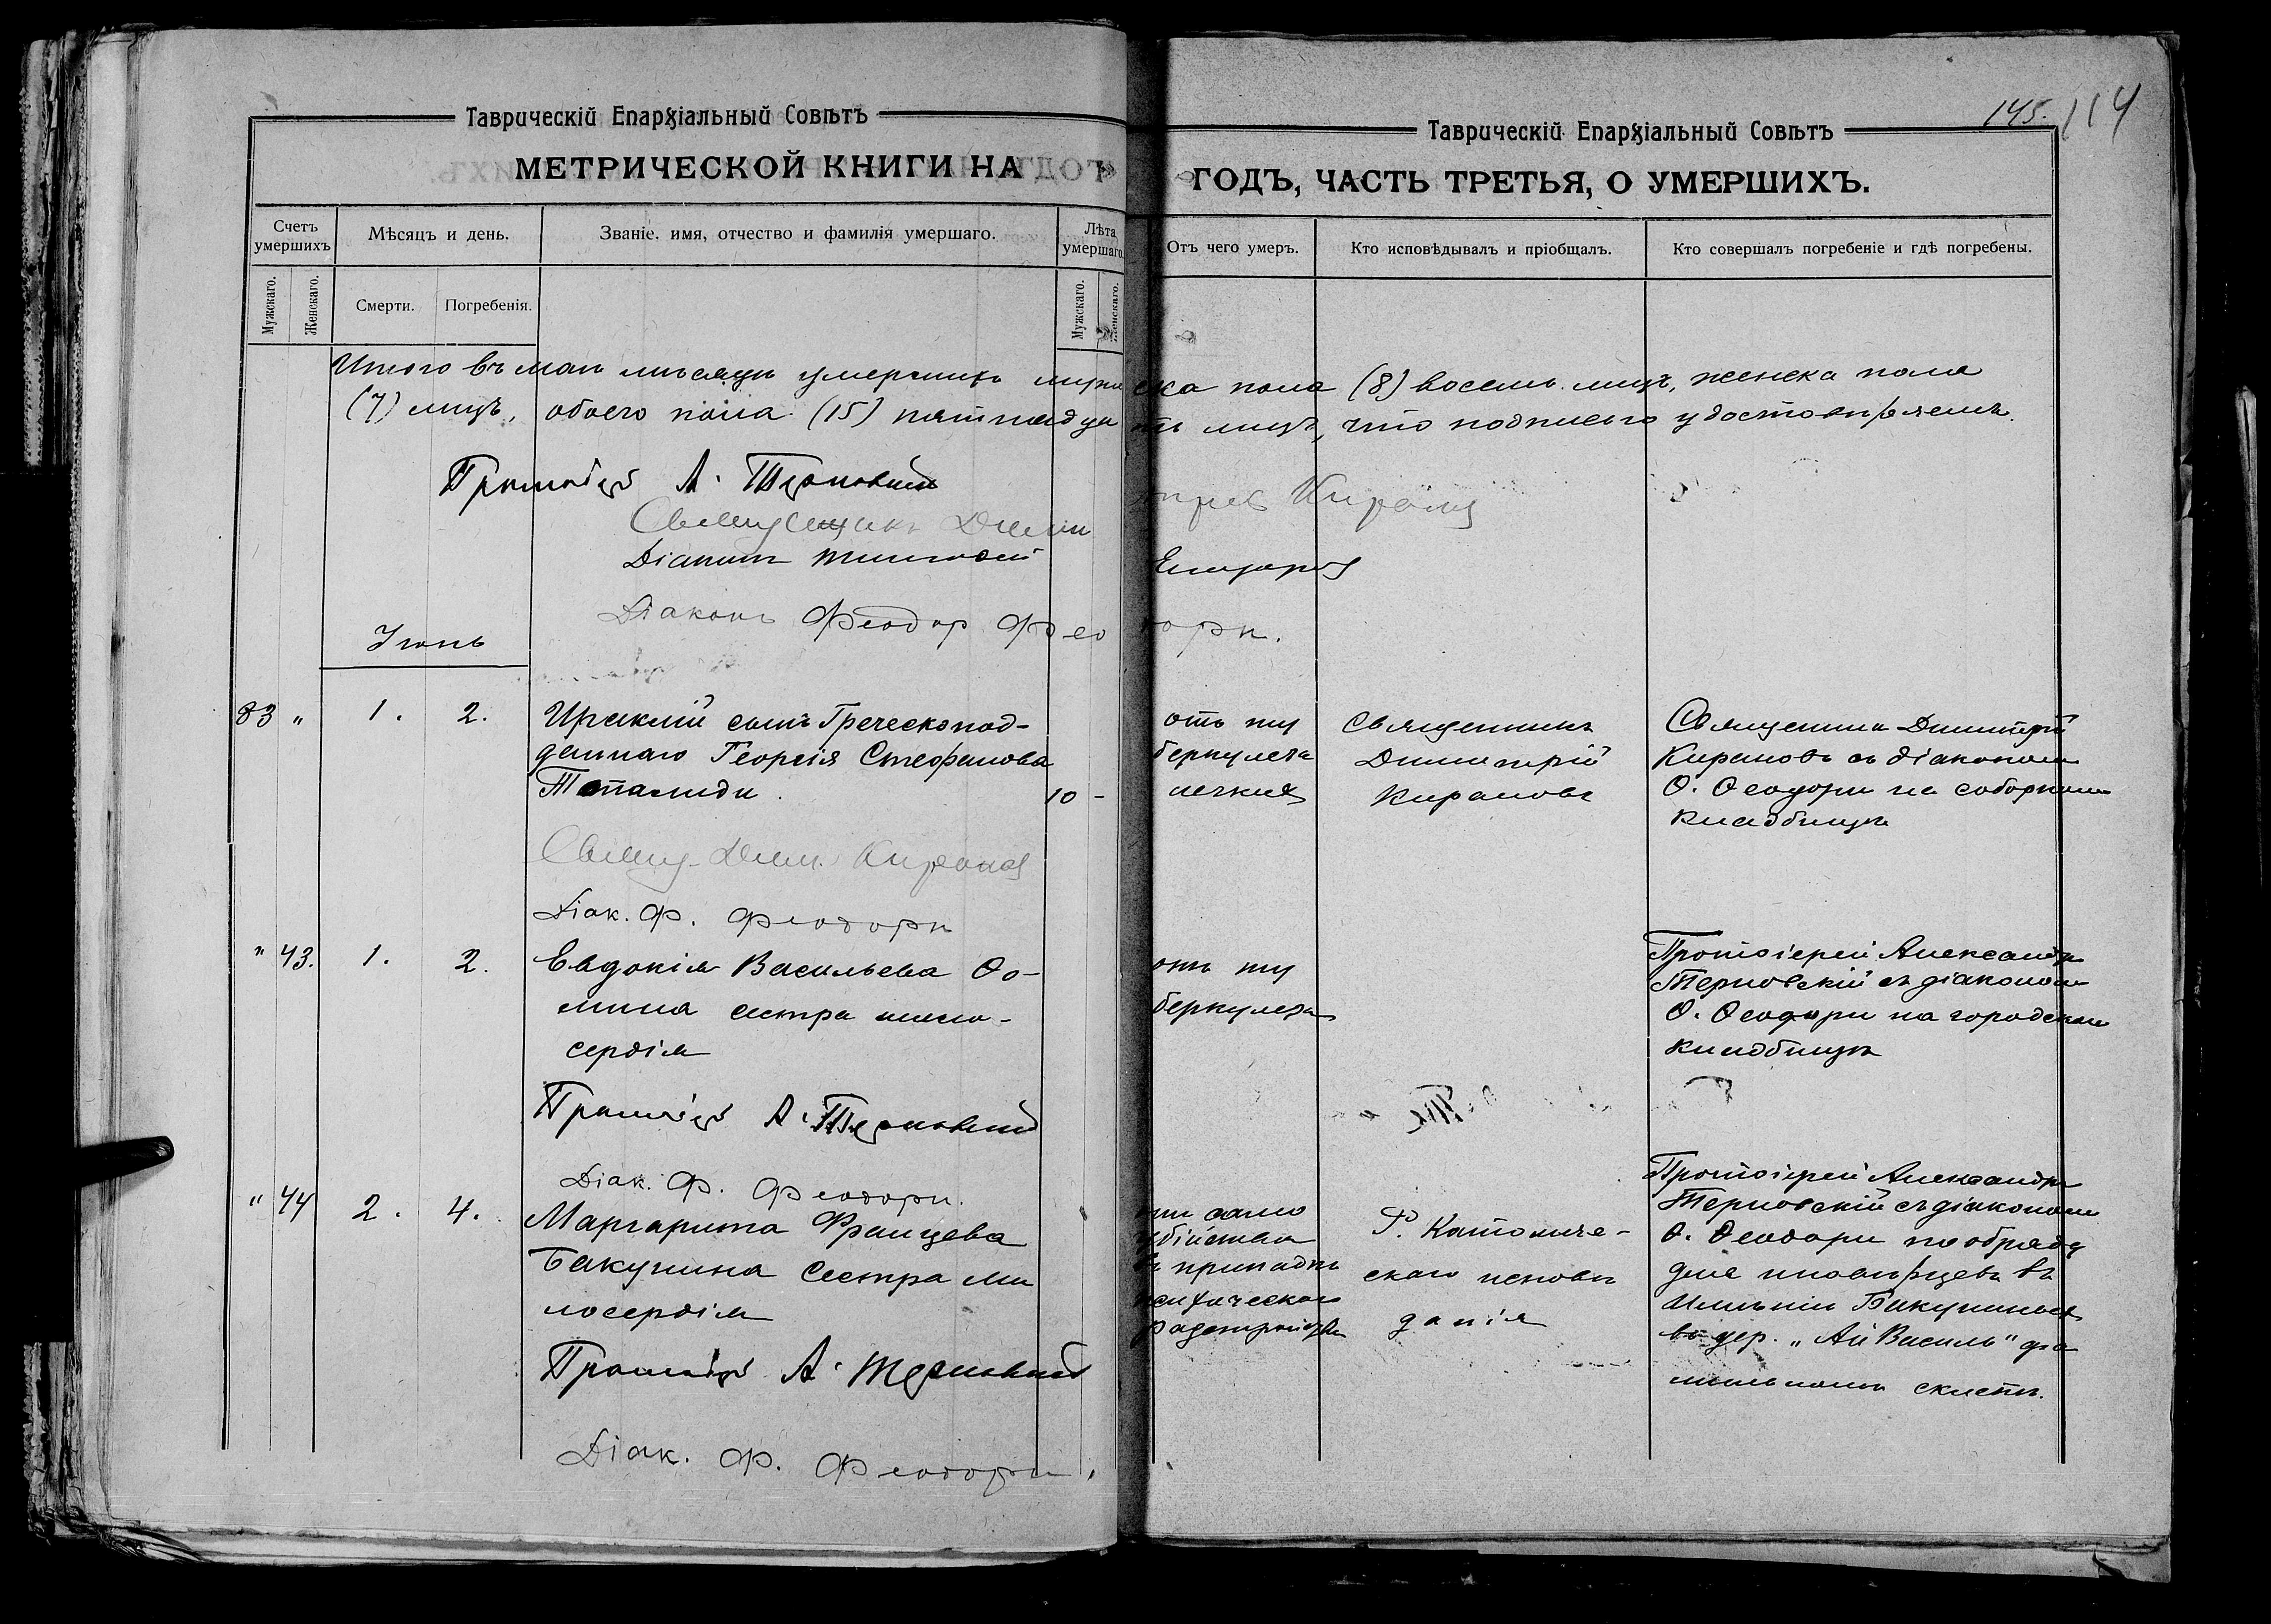 145. 114
Таврическій Епархіальный Совѣтъ
МЕТРИЧЕСКОЙ КНИГИ НА
Счетъ умершихъ
Мѣсяцъ и день.
Званіе, имя, отчество и фамилія умершаго.
Лѣта умершаго
Мужскаго.
Женскаго.
Смерти.
Погребенія.
Мужскаго.
Женскаго.
Таврическій Епархіальный Совѣтъ
ГОДЪ, ЧАСТЬ ТРЕТЬЯ, О УМЕРШИХЪ.
Отъ чего умеръ.
Кто исповѣдывалъ и пріобщалъ.
Кто совершалъ погребеніе и гдѣ погребены.
Итого въ маѣ мѣсяцѣ умершихъ мужеска пола (8) восемь лицъ, женска пола
(7) лицъ, обоего пола (15) пятнадцать лицъ, что подписью удостовѣряемъ.
Протоіерей А. Терновскій
Священникъ Димитрій Кирановъ
Діаконъ Тимофей
Діаконъ Феодор Феодори.
Іюнь
83 " 1. 2.
Ираклій сынъ Греческопод-
даннаго Георгія Стефанова
Топалиди. 10 -
отъ ту
беркулеза
легкихъ
Священникъ
Димитрій
Кирановъ
Священникъ Димитрій
Кирановъ съ діакономъ
Ѳ. Ѳеодори на соборномъ
кладбищѣ
Свящ. Дим. Кирановъ
Діак. Ф. Феодори
" 43. 1. 2.
Евдокія Васильева Ѳо-
мина сестра мило-
сердія
отъ ту
беркулеза
Протоіерей Александръ
Терновскій съ діакономъ
Ѳ. Ѳеодори на городскомъ
кладбищѣ
Протоіерей А. Терновскій
Діак. Ф. Феодори.
" 44 2. 4.
Маргарита Францева
Бакунина сестра ми
лосердія
отъ само
убійства
въ припадкѣ
психическаго
разстройства
Р. Католиче-
скаго исповѣ
данія
Протоіерей Александръ
Терновскій съ діакономъ
Ѳ. Ѳеодори по обряду
для иновѣрцевъ въ
имѣніи Бакуниныхъ
въ дер. "Ай Василь" фа
мильномъ склепѣ.
Протоіерей А. Терновскій
Діак. Ф. Феодори.